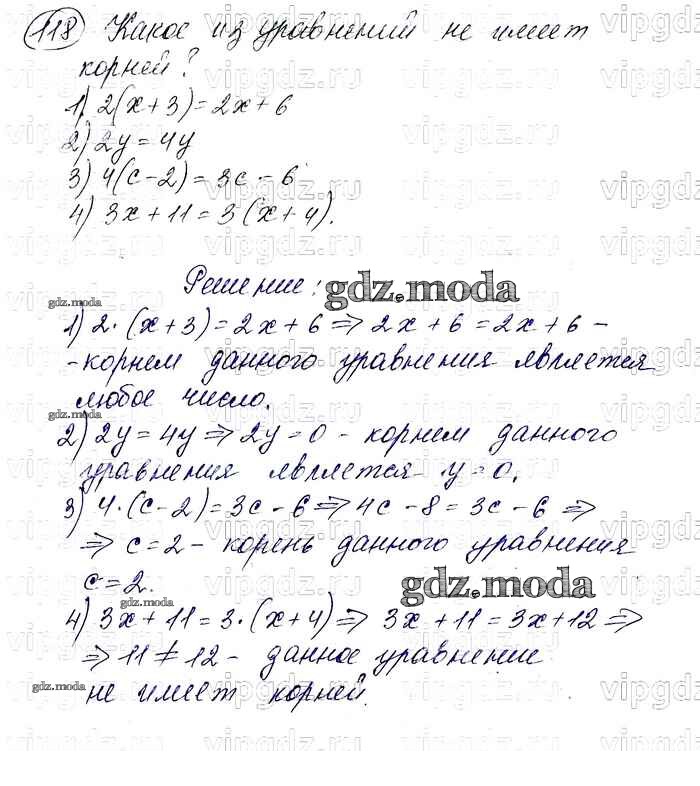 118 Какое из уравнений не имеет
корней?
1) 2(x+3)=2x+6
2) 2y=4y
3) 4(c-2)=3c-6
4) 3x+11=3(x+4).
Решение:
gdz.moda
gdz.moda
1) 2·(x+3)=2x+6 => 2x+6=2x+6 -
- корнем данного уравнения является
любое число.
gdz.moda
2) 2y=4y => 2y=0 - корнем данного
уравнения является y=0.
3) 4·(c-2)=3c-6 => 4c-8=3c-6 =>
=> c=2 - корень данного уравнения
c=2.
gdz.moda
gdz.moda
4) 3x+11=3·(x+4) => 3x+11=3x+12 =>
=> 11≠12 - данное уравнение
gdz.moda
не имеет корней.
vipgdz.ru